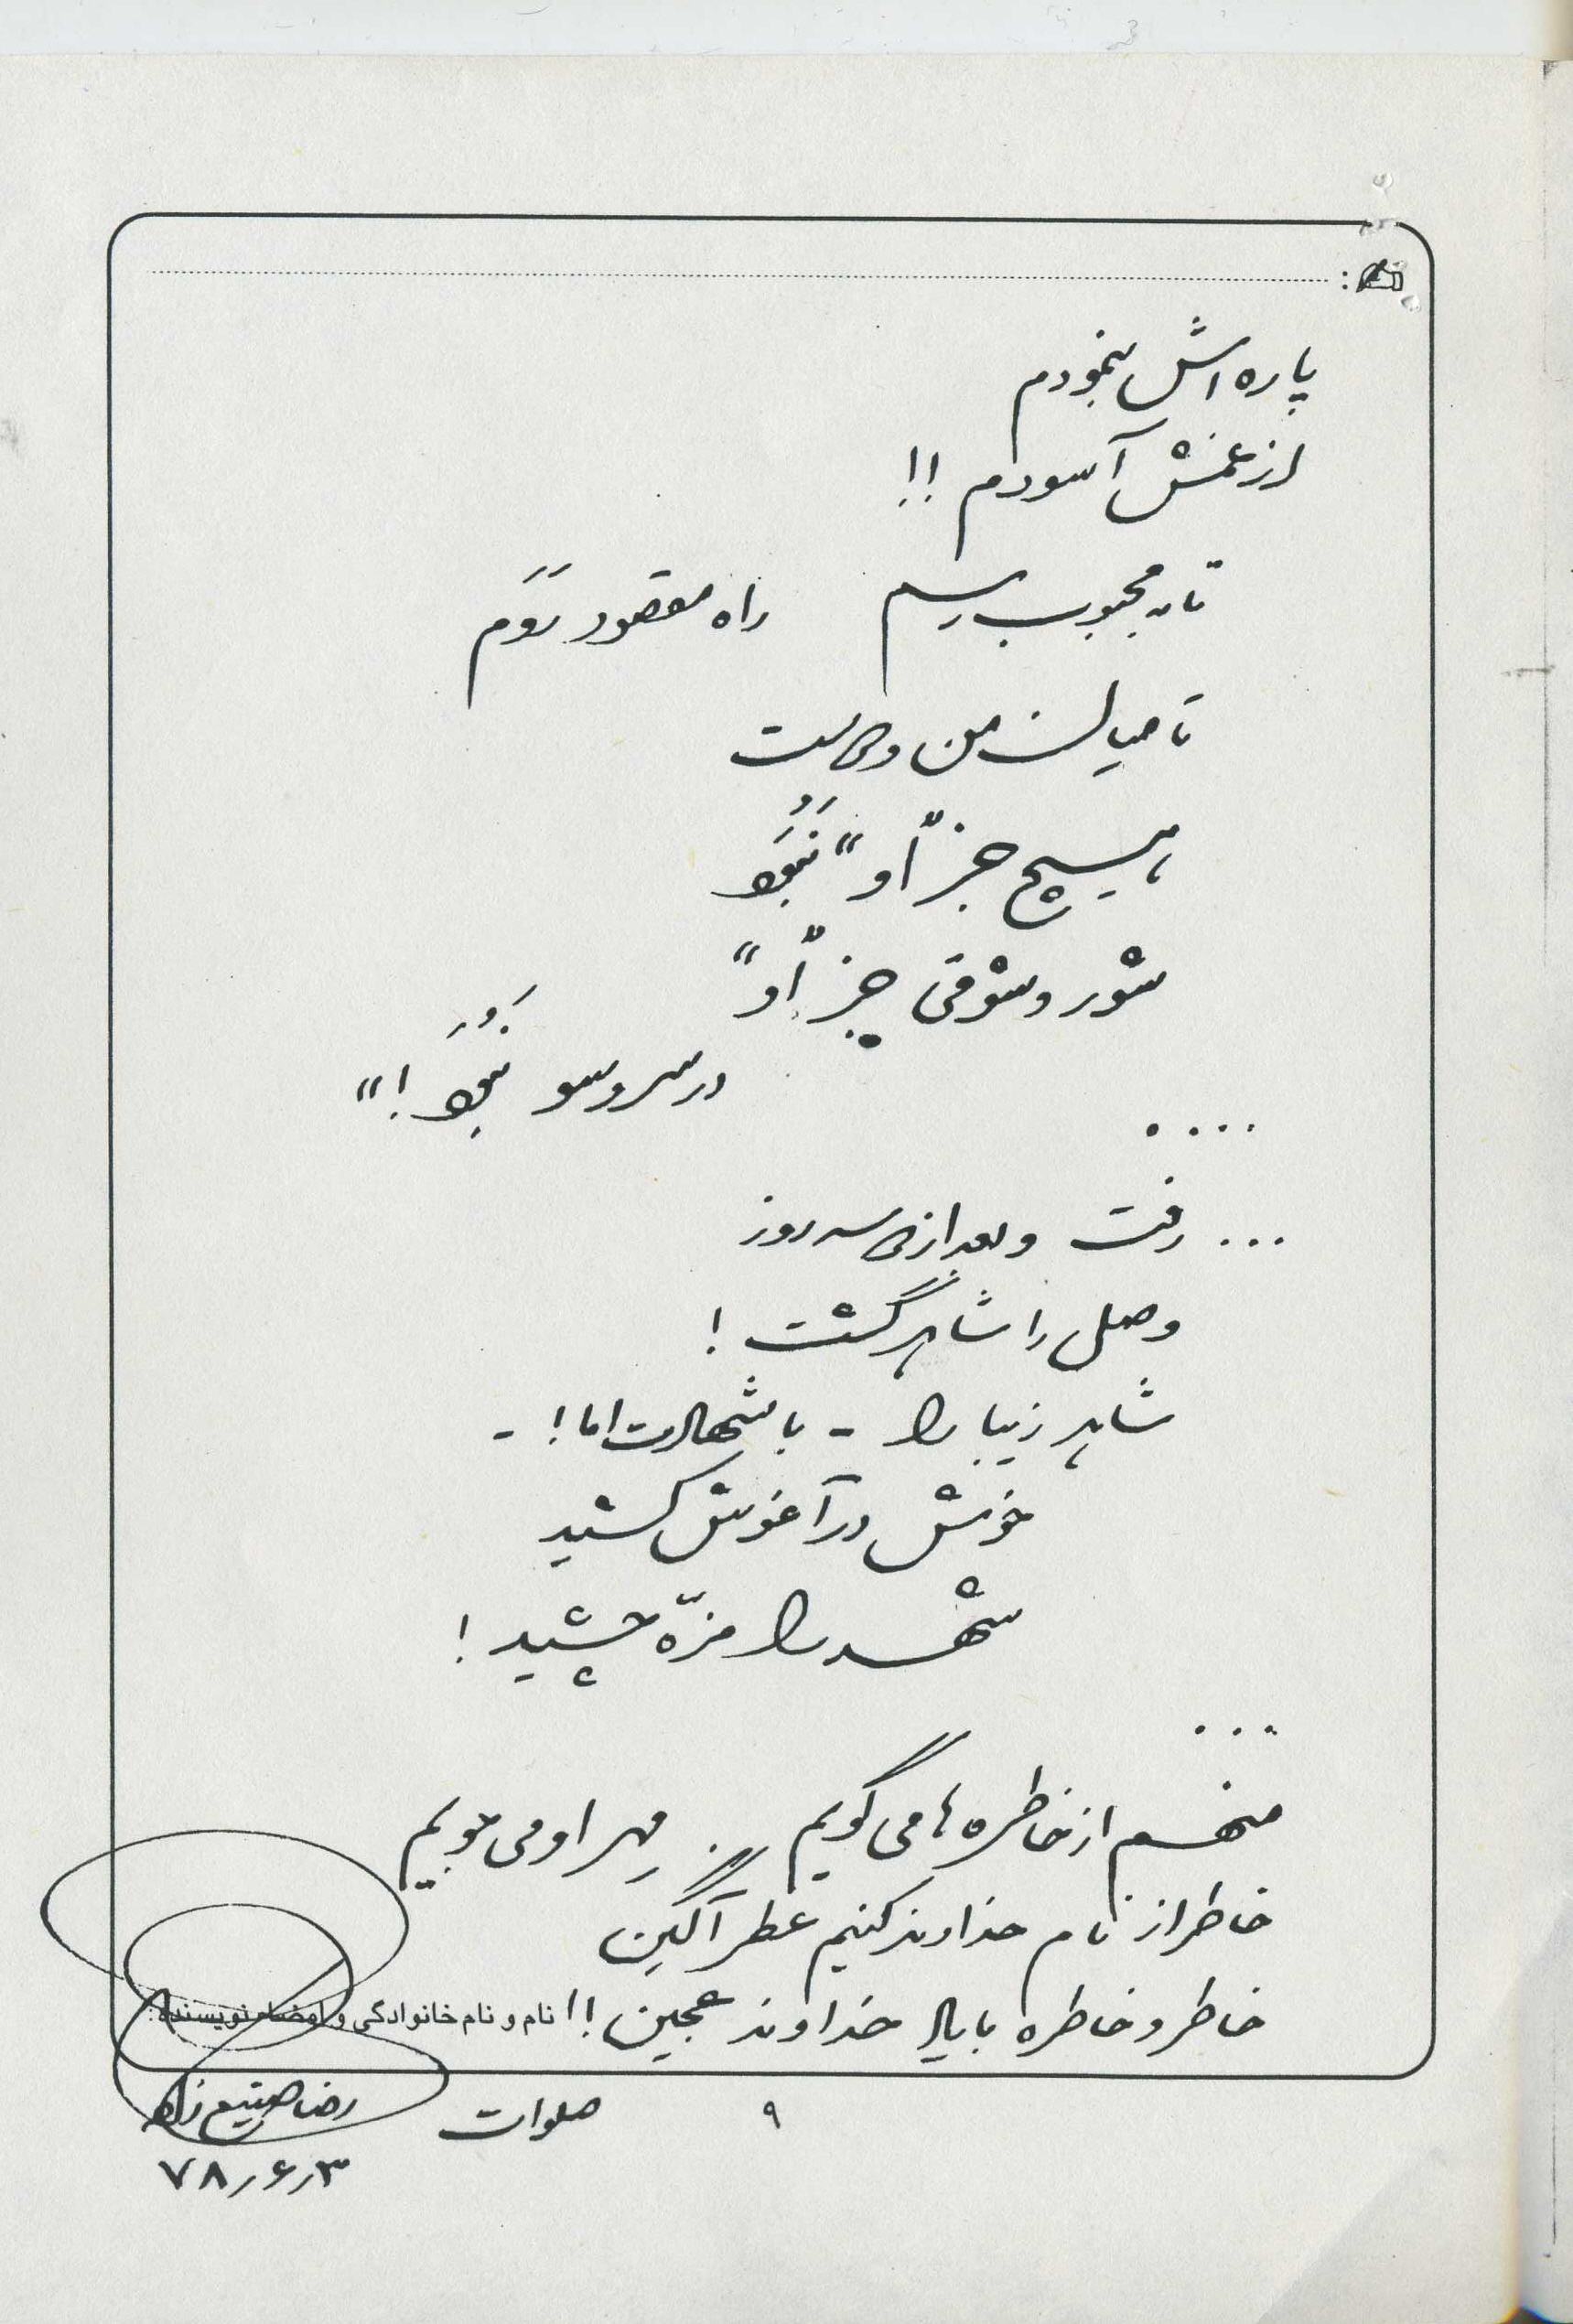 پاره اش بنمودم
از غمش آسودم !!
تا به محبوب رسم     راه مقصود رَوَم
تا میان من و وی ست
هیچ جز "او" نَبُوَد
شور و شوقی جز "او"
در سر و سو نَبُوَد !"
....
... رفت و بعد از سی سه روز
وصل را شاهد گشت !
شاهد زیبا را - با شهادت اما ! -
خوش در آغوش کشید
شهد را مزّه چشید !
...
منهم از خاطره ها می گویم     مهر او می جویم
خاطر از نام خداوند کنیم عطر آگین
خاطر و خاطره با یاد خداوند عجین !!
نام و نام خانوادگی و امضاء نویسنده:
۹
صلوات
رضا صنیع زاده
۷۸٫۶٫۳